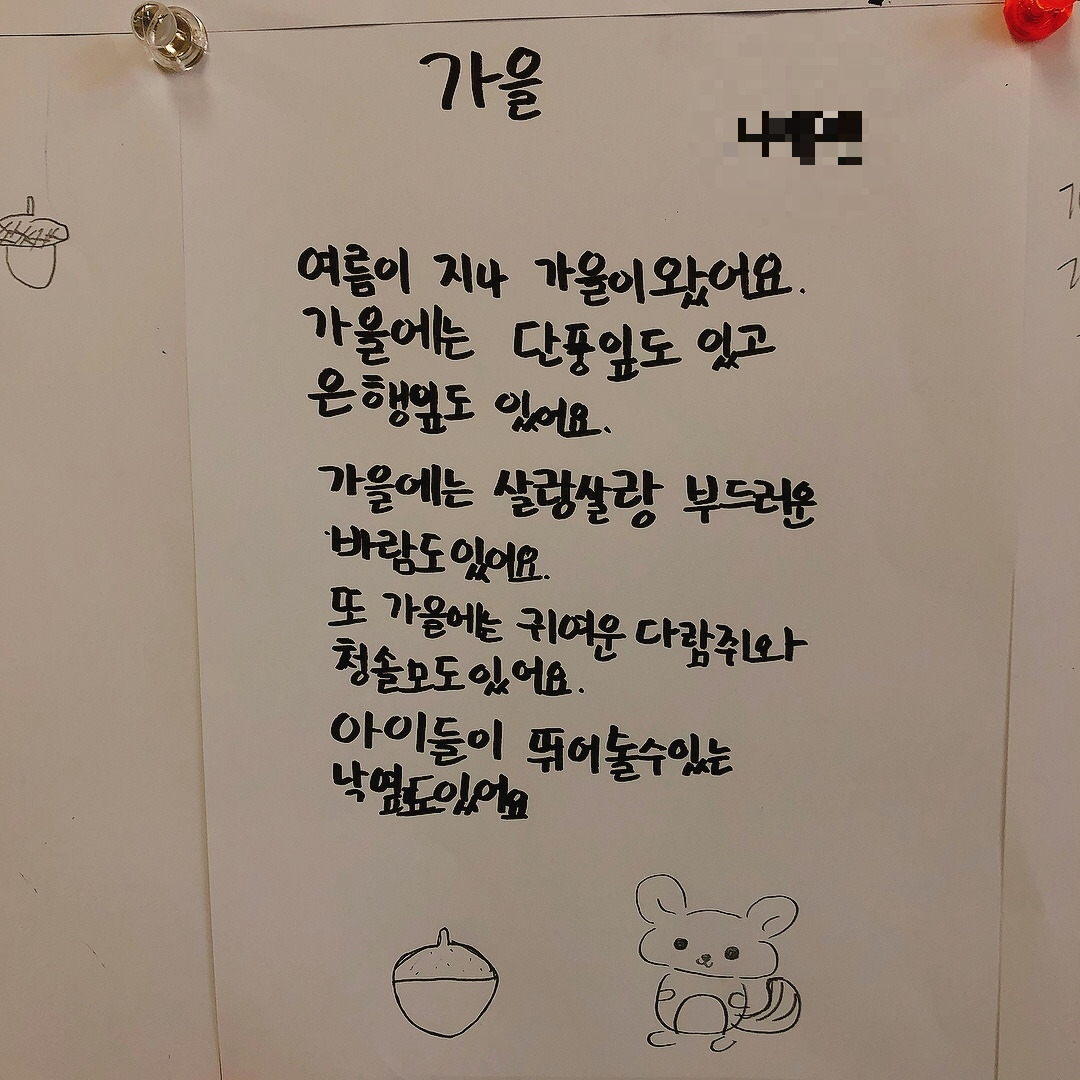 가을
여름이 지나 가을이왔어요.
가을에는 단풍잎도 있고
은행잎도 있어요.
가을에는 살랑쌀랑 부드러운
바람도있어요.
또 가을에는 귀여운 다람쥐와
청솔모도있어요.
아이들이 뛰어놀수있는
낙옆도있어요